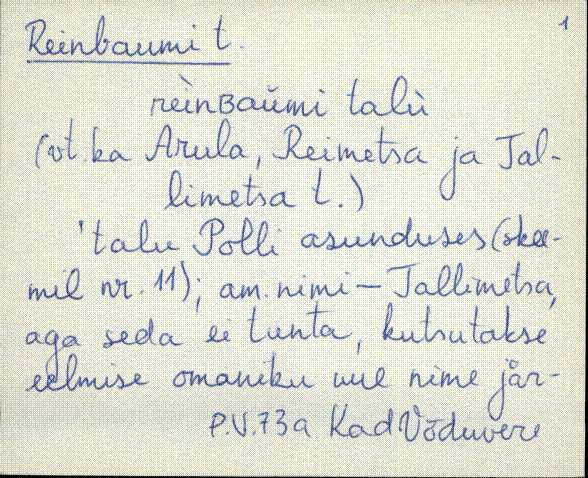 1
Reinbaumi t.
rèinʙaùmi talù
(vt. ka Arula, Reimetsa ja Tal-
limetsa t.)
'talu Polli asunduses (skee-
mil nr. 11); am. nimi – Tallimetsa,
aga seda ei tunta, kutsutakse
eelmise omaniku uue nime jär-
P.V. 73a Kad Võduvere